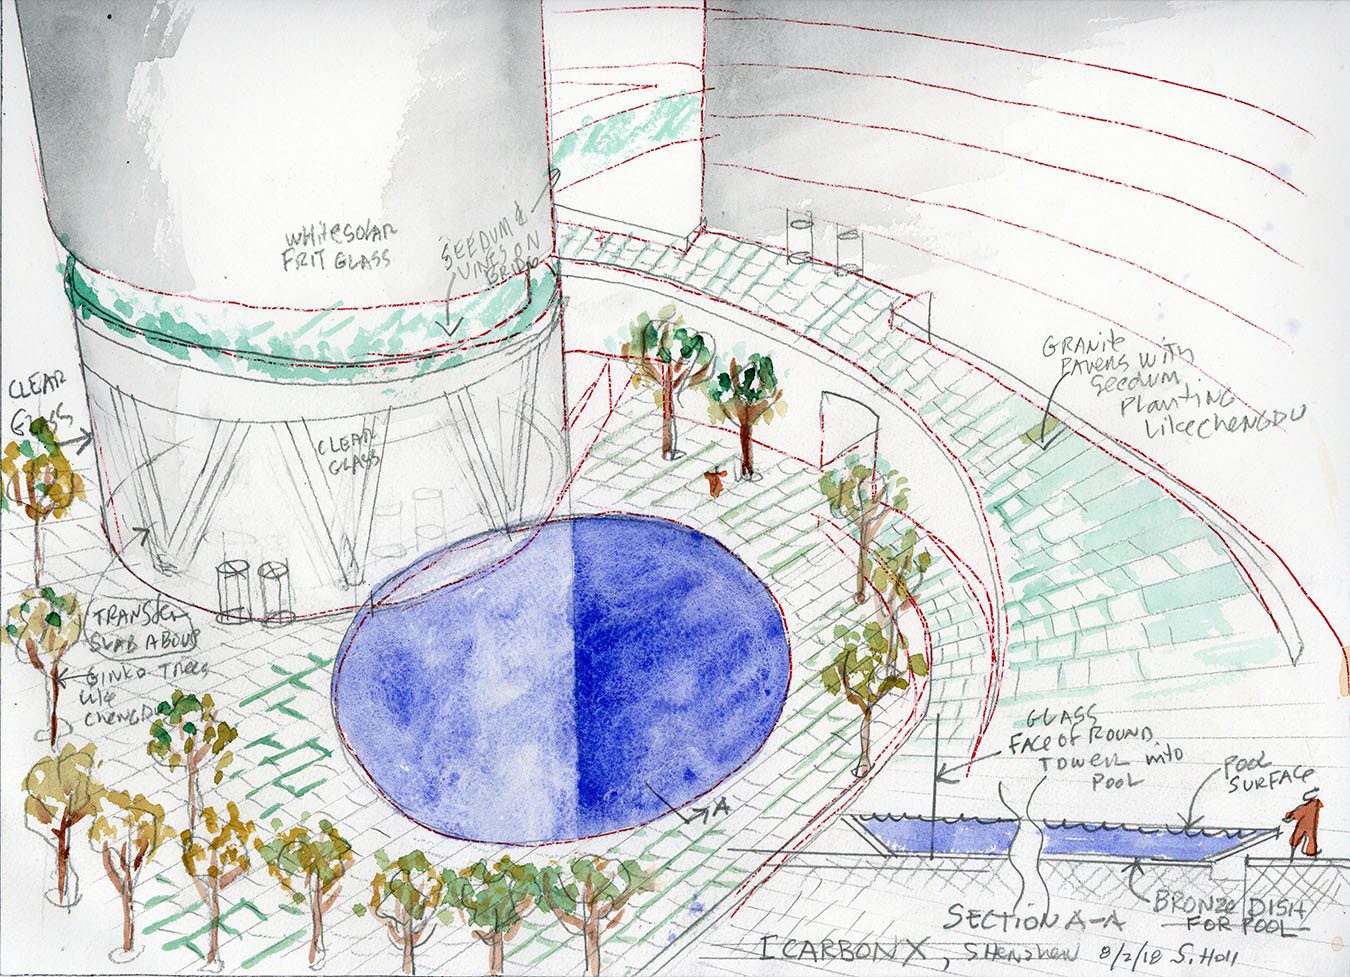 WHITE SOLAR
FRIT GLASS
SEEDUM &
VINES ON
GRID
CLEAR
GLASS
CLEAR
GLASS
GRANITE
PAVERS WITH
SEEDUM
PLANTING
LIKE CHENGDU
TRANSFER
SLAB ABOVE
GINKO TREES
LIKE
CHENGDU
GLASS
FACE OF ROUND
TOWER INTO
POOL
POOL
SURFACE
A
SECTION A-A
BRONZE DISH
FOR POOL
ICARBONX, SHENZHEN 8/2/18 S. Holl